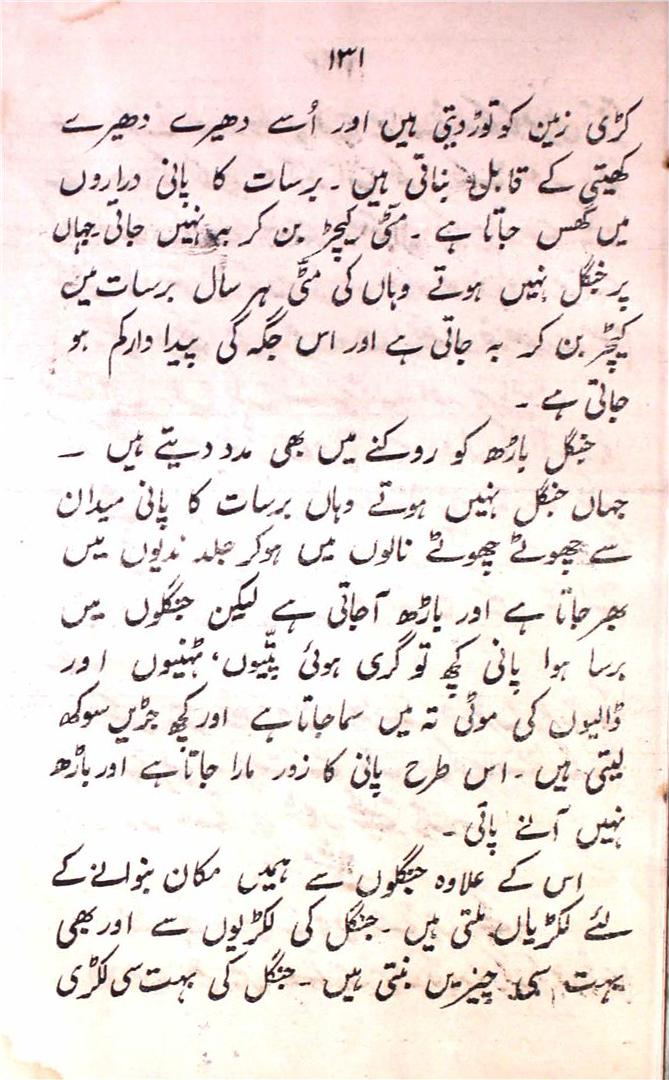 ۱۳۱
کڑی زمین کو توڑ دیتی ہیں اور اُسے دھیرے دھیرے
کھیتی کے قابل بناتی ہیں۔ برسات کا پانی دراروں
میں گھس جاتا ہے۔ مٹّی کیچڑ بن کر بہ نہیں جاتی جہاں
پر جنگل نہیں ہوتے وہاں کی مٹّی ہر سال برسات میں
کیچڑ بن کر بہ جاتی ہے اور اس جگہ گی پیداوار کم ہو
جاتی ہے۔
جنگل باڑھ کو روکنے میں بھی مدد دیتے ہیں ۔
جہاں جنگل نہیں ہوتے وہاں برسات کا پانی میدان
سے چھوٹے چھوٹے نالوں میں ہوکر جلد ندیوں میں
بھر جاتا ہے اور باڑھ آجاتی ہے لیکن جنگلوں میں
برسا ہوا پانی کچھ تو گری ہوئی پتّیوں، ٹہنیوں اور
ڈالیوں کی موٹی تہ میں سما جاتا ہے اور کچھ جڑیں سوکھ
لیتی ہیں۔ اس طرح پانی کا زور مارا جاتا ہے اور باڑھ
نہیں آنے پاتی۔
اس کے علاوہ جنگلوں سے ہمیں مکان بنوانے کے
لئے لکڑیاں ملتی ہیں۔ جنگل کی لکڑیوں سے اور بھی
بہت سی چیزیں بنتی ہیں۔ جنگل کی بہت سی لکڑی